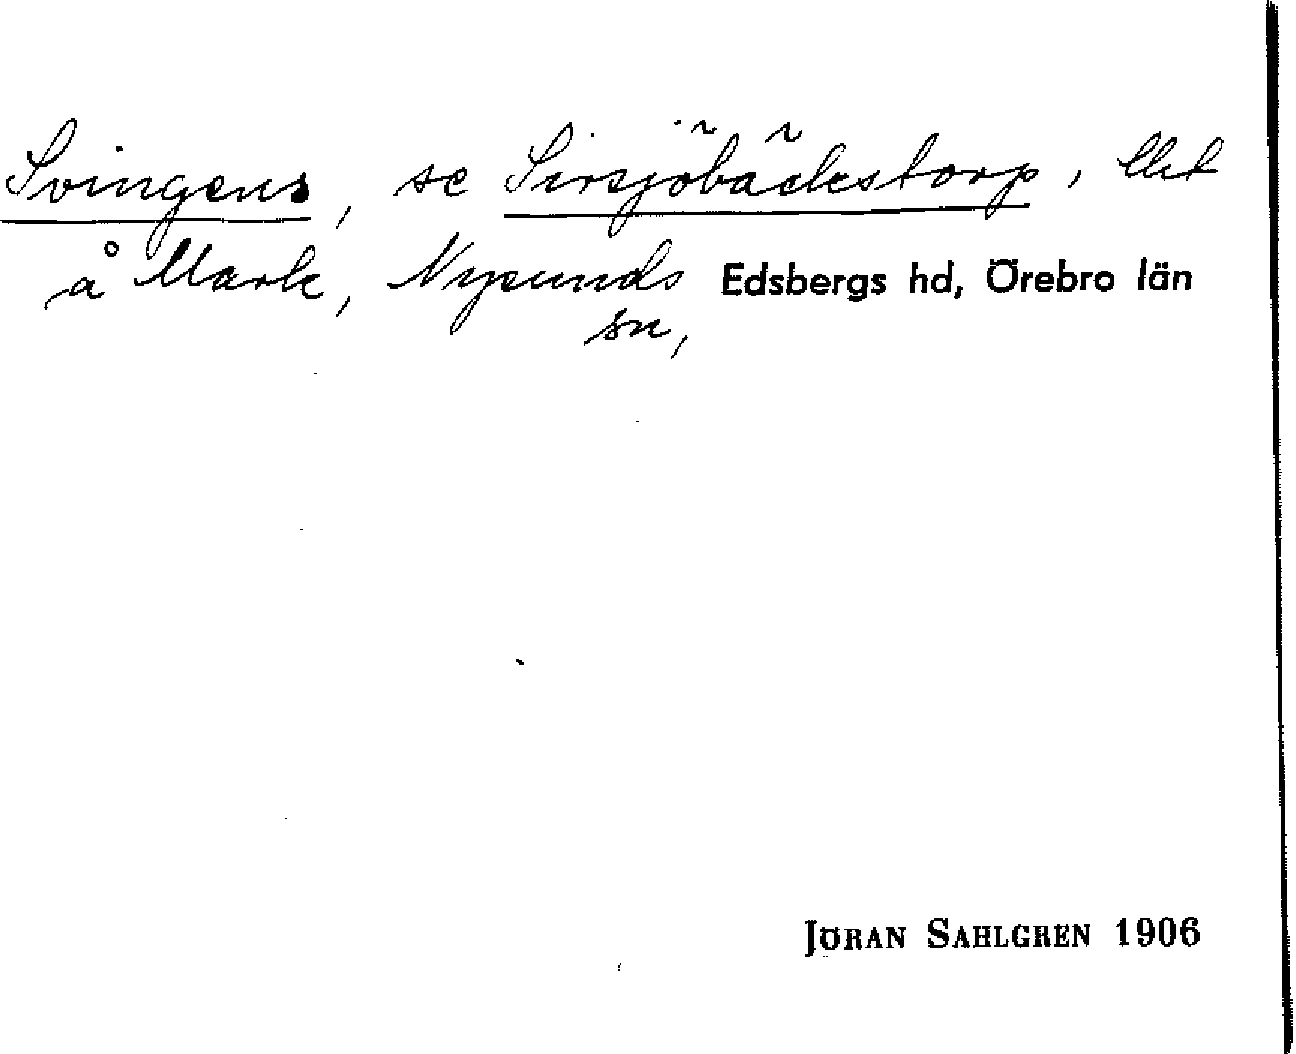 Svingens, se Sirsjöbäckstorp, llet
å Mark, Nysunds Edsbergs hd, Örebro län
sn,
JÖRAN SAHLGREN 1906